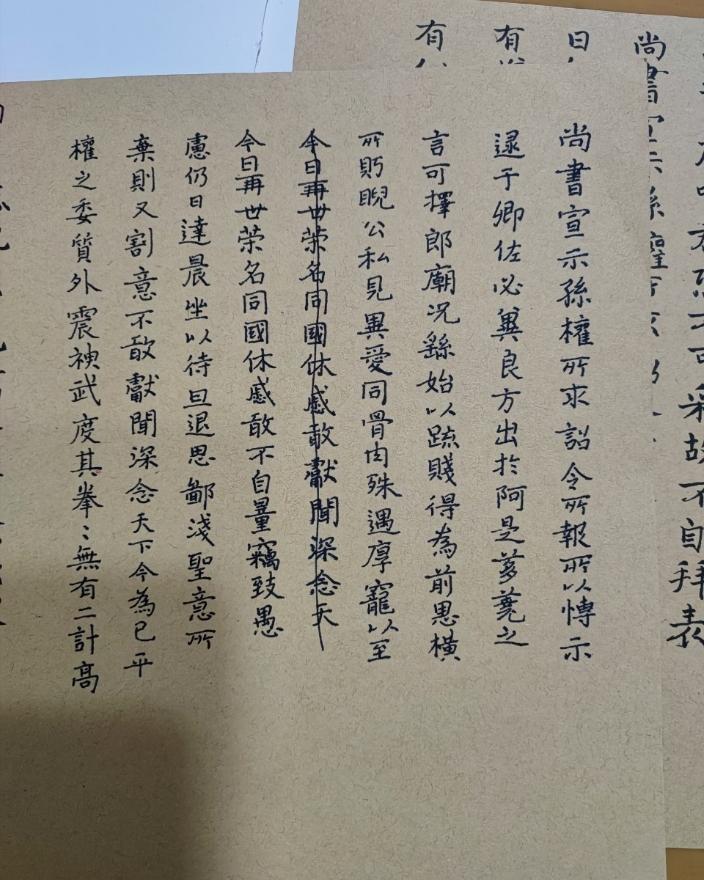 可采故不自拜表
尚書宣示孫權
日
有
有
尚書宣示孫權所求詔令所報所以愽示
逮于卿佐必冀良方出於阿是芻蕘之
言可擇郎廟況繇始以疏賤得為前恩橫
所眄睨公私見異愛同骨肉殊遇厚寵以至
今日再世荣名同國休慼敢獻聞深念天
今日再世荣名同國休慼敢不自量竊致愚
慮仍日達晨坐以待旦退思鄙淺聖意所
棄則又割意不敢獻聞深念天下今為已平
權之委質外震神武度其拳〻無有二計高